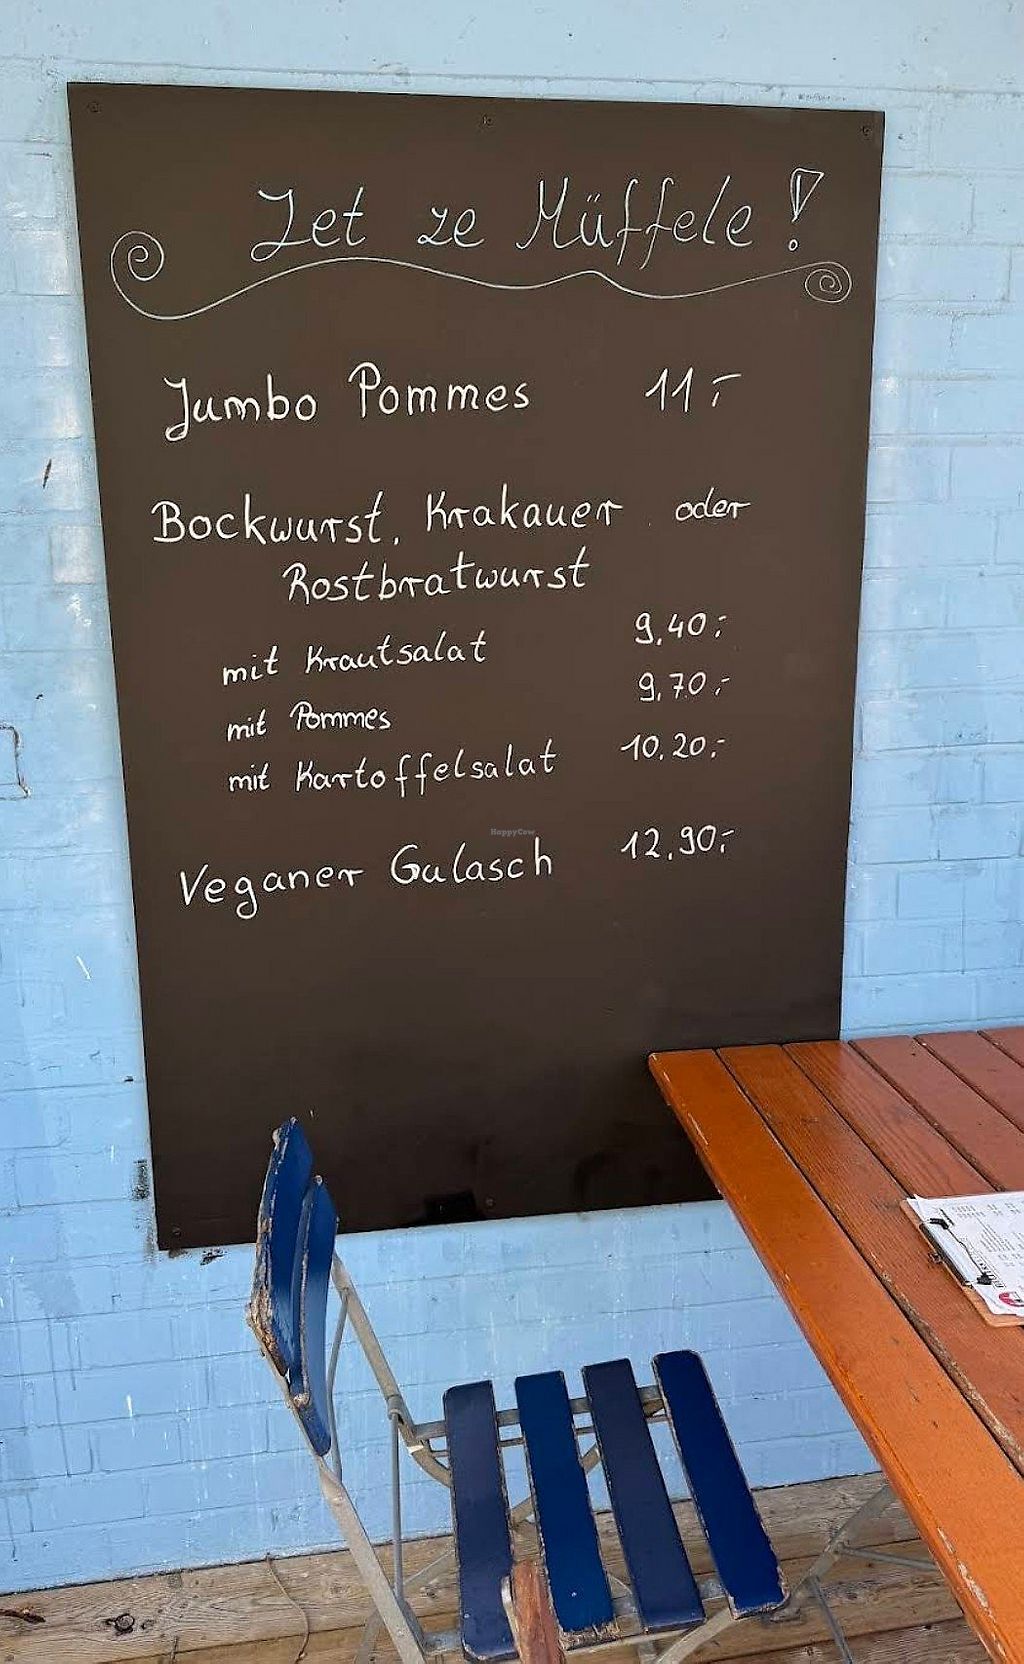 Jet ze Müffele!
Jumbo Pommes 11,-
Bockwurst, Krakauer oder
Rostbratwurst
mit Krautsalat 9,40,-
mit Pommes 9,70,-
mit Kartoffelsalat 10,20,-
HappyCow
Veganer Gulasch 12,90,-